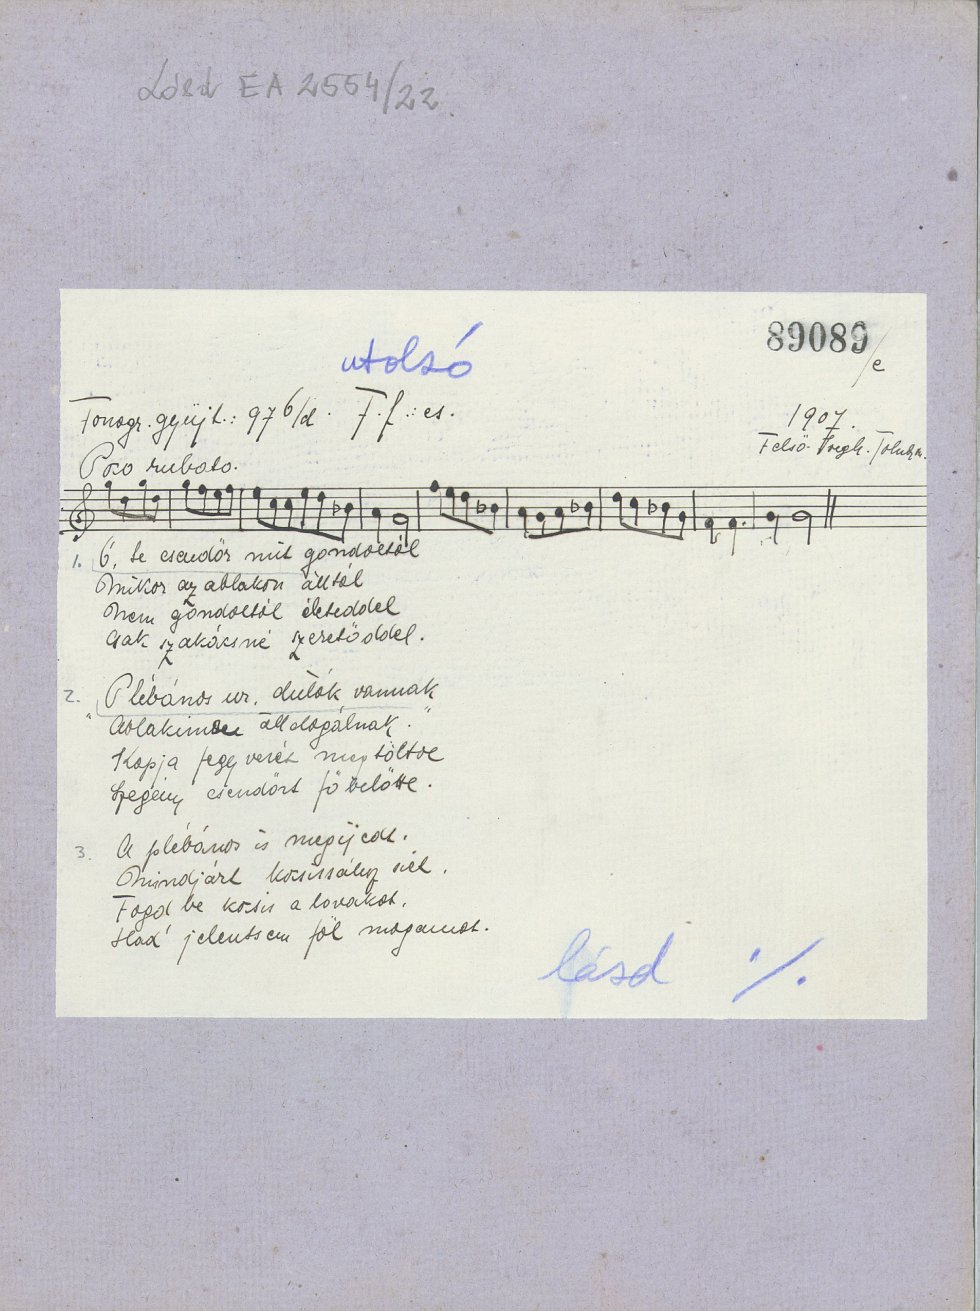 Lásd EA 2554/22
89089
/e
utolsó
Fonogr. gyüjt.: 976/d. F. f.: es.
1907.
Felső-Iregh. Tolna m.
Poco rubato.
1. Ó, te csendőr mit gondoltál
Mikor az ablakon álltál
Nem gondoltál életeddel
Csak szakácsné szeretőddel.
2. Plébános ur, dulók vannak
"Ablakimon álldogálnak."
Kapja fegyverét megtöltve
Szegény csendőrt főbelőtte.
3. A plébános is megijedt.
Mindjárt kocsissához siet.
Fogd be kocsis a lovakat,
Had' jelentsem föl magamat.
lásd ·/.